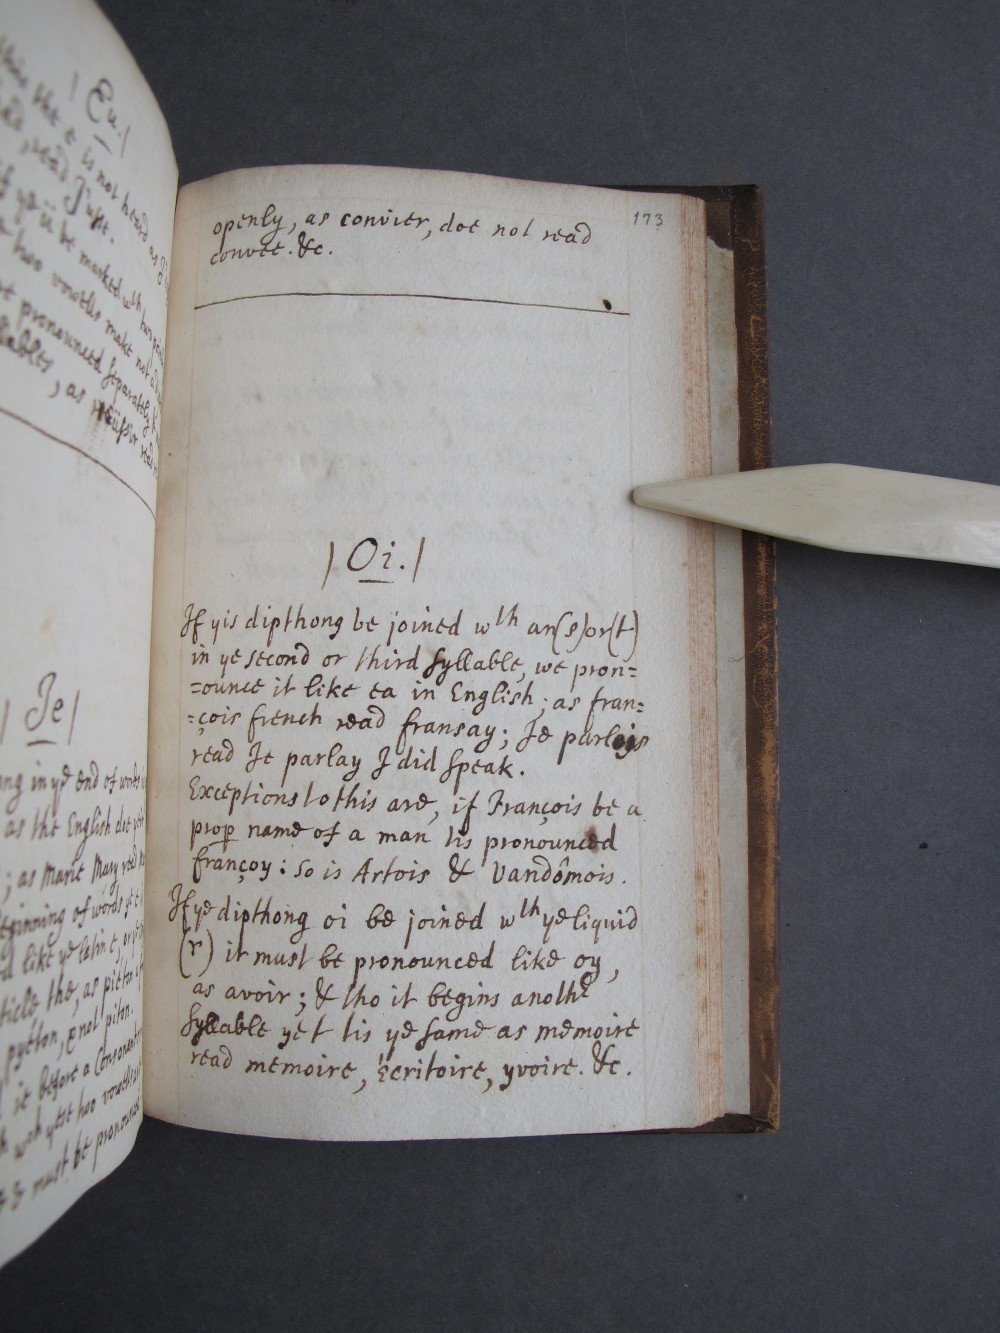 | Eu. |
this the e is not heard as
read J'usse.
if ye ü be marked wth
two vowells make not a
pronounced separately
, as réüssir read
| Ie |
in ye end of words
as the English doe
; as Marie Mary read
beginning of words
like ye latin e, or ye
ticle the, as pieton
pyeton, & not piton.
ie before a Consonant
wth yese two vowells
& must be pronounced
173
openly, as convier, doe not read
convee. &c.
| Oi. |
If yis dipthong be joined wth an (s) or (t)
in ye second or third syllable, we pron=
=ounce it like ea in English; as fran=
=çois french read fransay; Je parlois
read Je parlay I did speak.
Exceptions to this are, if François be a
prop name of a man tis pronounced
françoy: so is Artois & Vandômois.
If ye dipthong oi be joined wth ye liquid
(r) it must be pronounced like oy,
as avoir; & tho it begins anothr
syllable yet tis ye same as memoire
read memoire, écritoire, yvoire. &c.